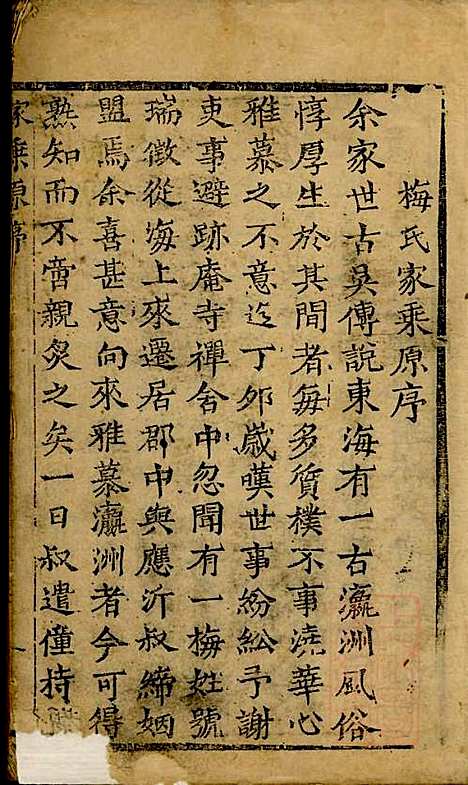 梅氏家乘原序
余家世古吳傳說東海有一古瀛洲風俗
惇厚生於其間者每多質樸不事澆華心
雅慕之不意迄丁夘歲嘆世事紛紜予謝
吏事避跡庵寺禪舍中忽聞有一梅姓號
瑞徵從海上來遷居郡中與應沂叔締姻
盟焉余喜甚意向來雅慕瀛洲者今可得
熟知而不啻親炙之矣一日叔遣僮持
家乘原序